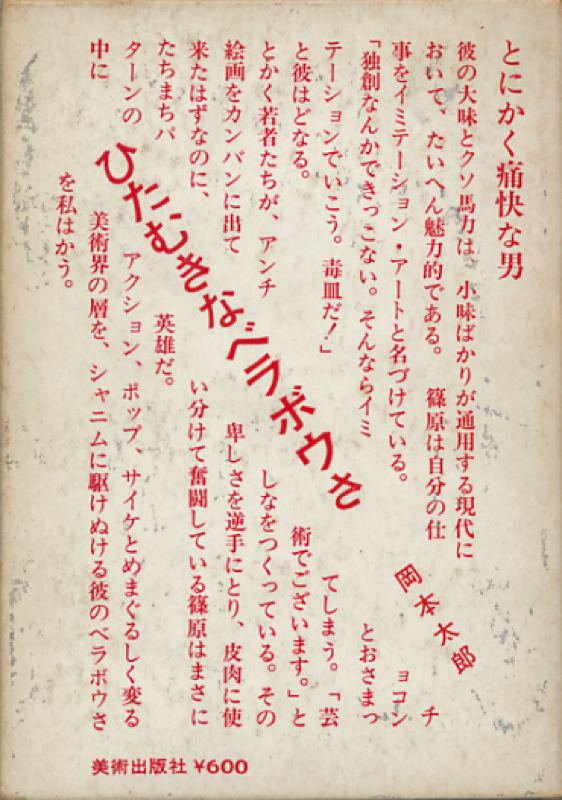 とにかく痛快な男
ひたむきなベラボウさ
岡本太郎
彼の大味とクソ馬力は、小味ばかりが通用する現代に
おいて、たいへん魅力的である。篠原は自分の仕
事をイミテーション・アートと名づけている。
「独創なんかできっこない。そんならイミ
テーションでいこう。毒皿だ!」
と彼はどなる。
とかく若者たちが、アンチ
絵画をカンバンに出て
来たはずなのに、
たちまちパ
ターンの
中に
チ
ョコン
とおさまっ
てしまう。「芸
術でございます。」と
しなをつくっている。その
卑しさを逆手にとり、皮肉に使
い分けて奮闘している篠原はまさに
英雄だ。
アクション、ポップ、サイケとめまぐるしく変る
美術界の層を、シャニムに駆けぬける彼のベラボウさ
を私はかう。
美術出版社 ¥600